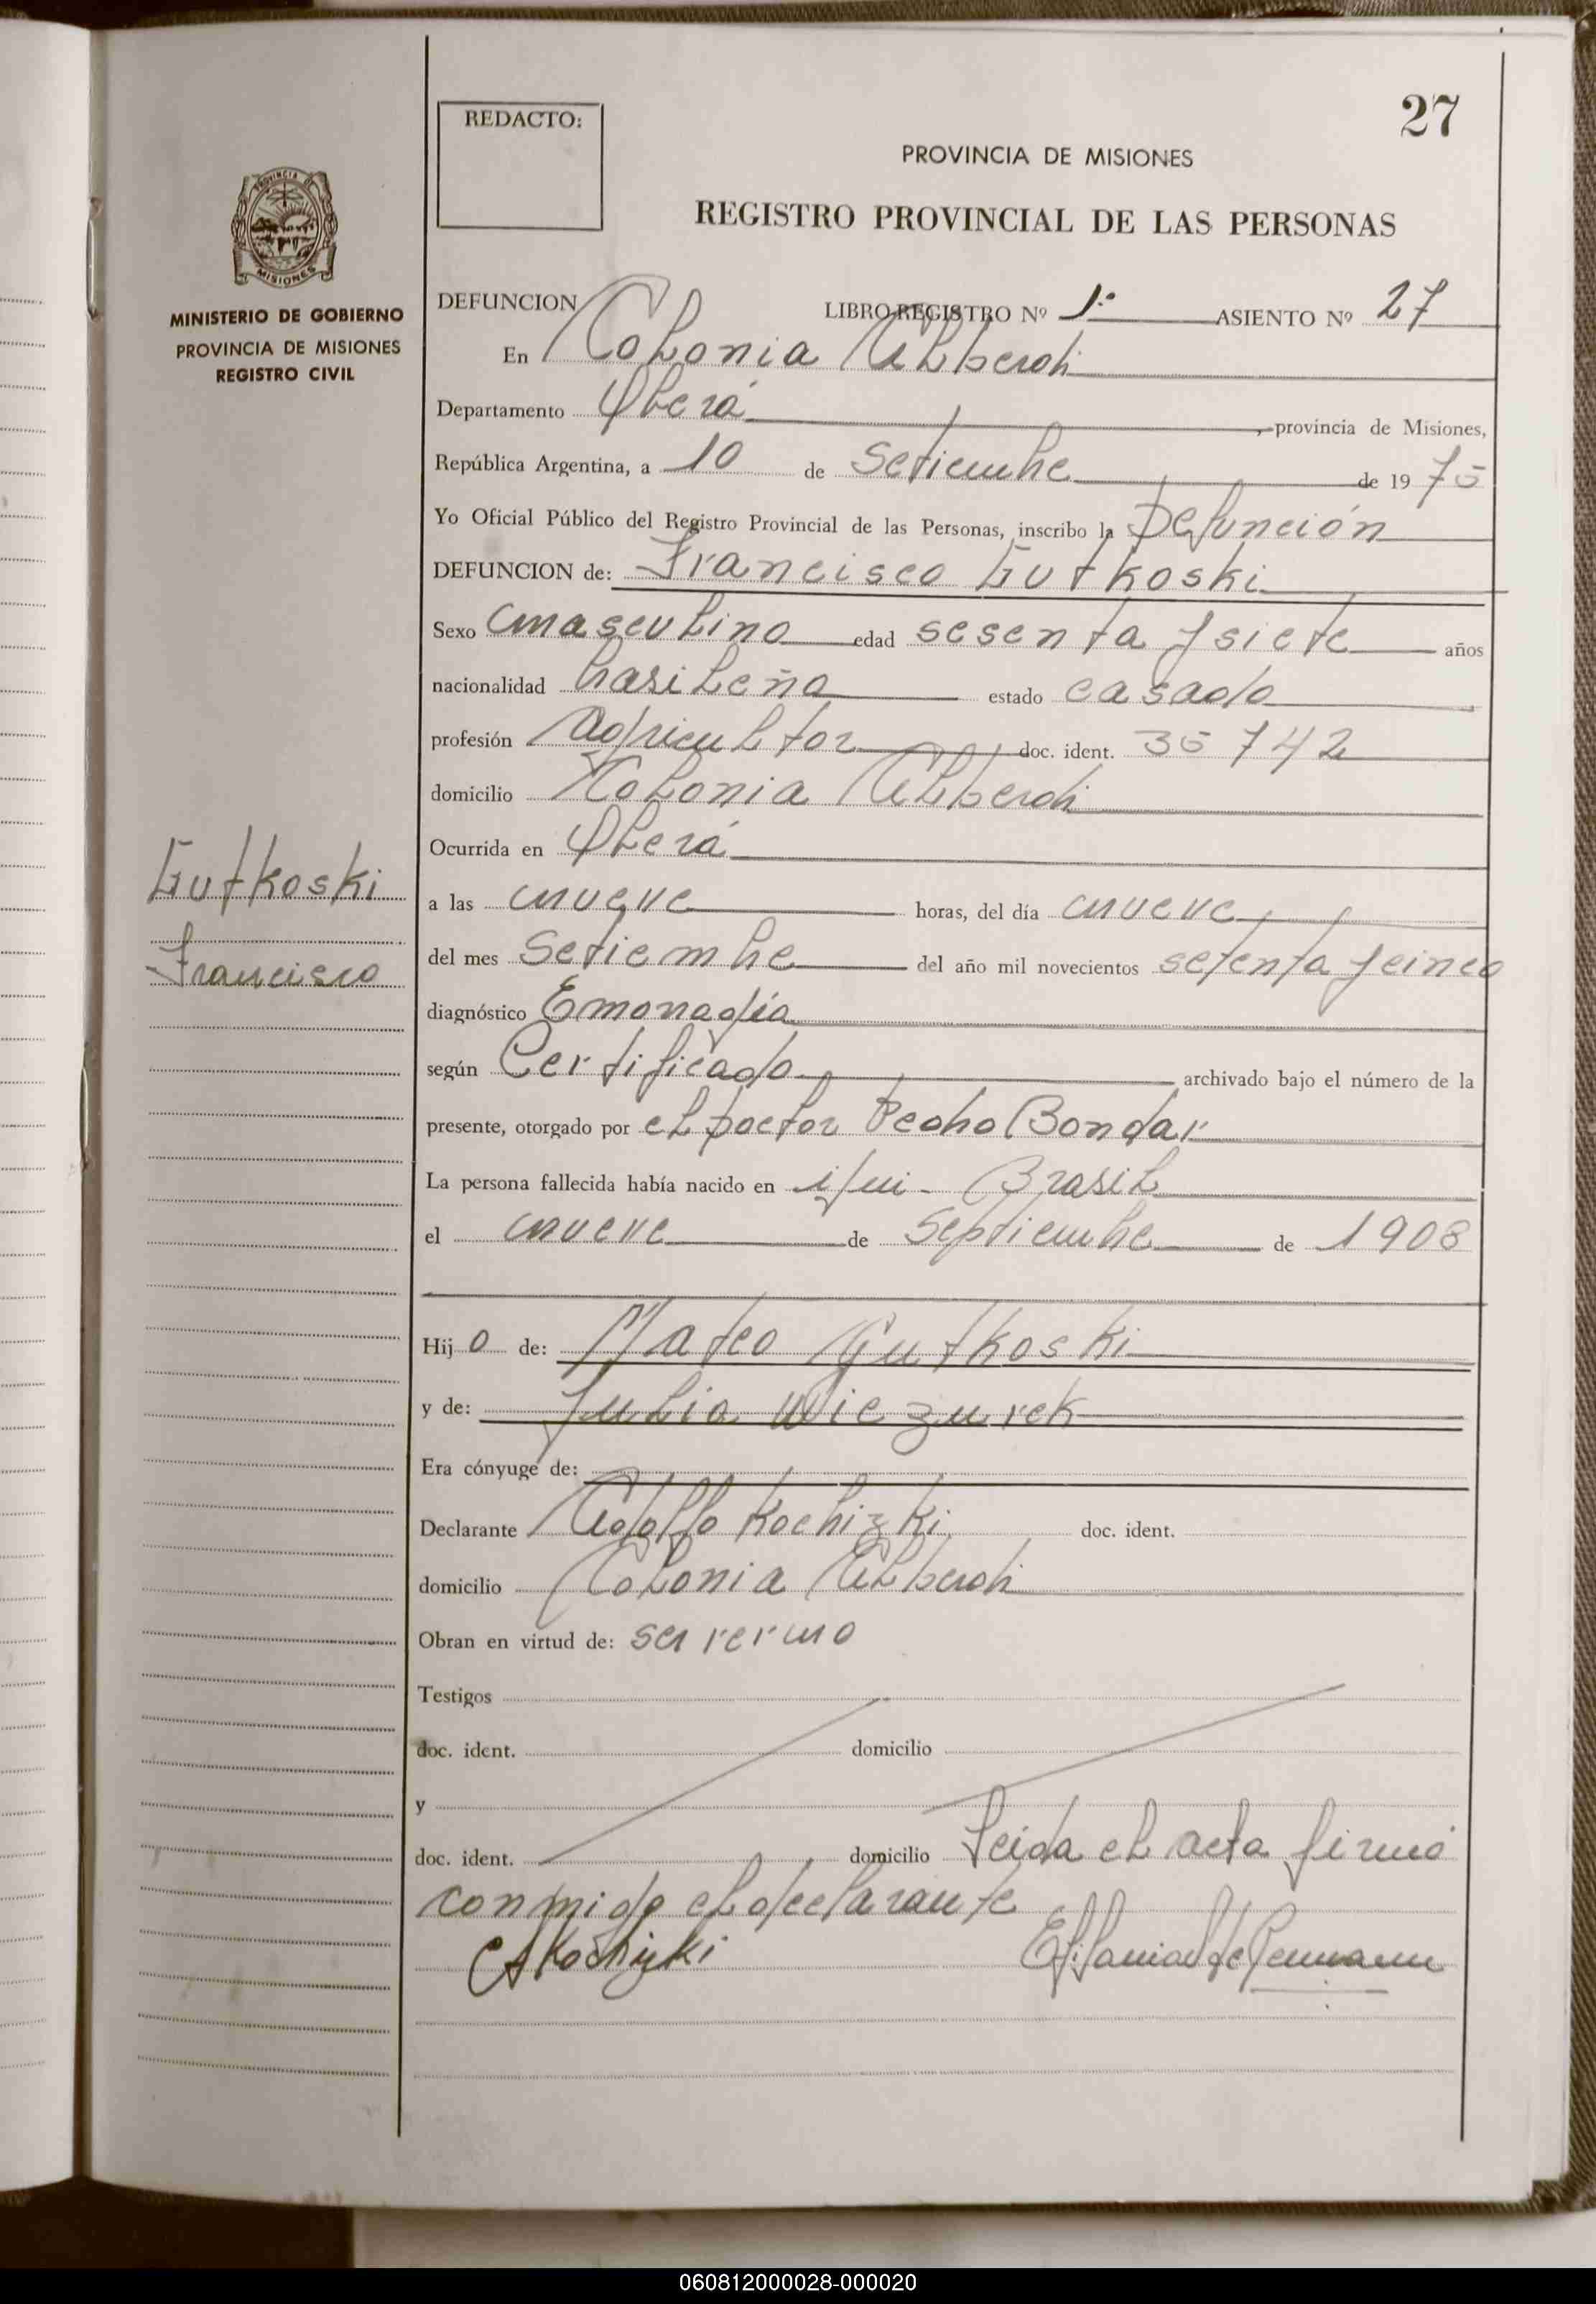 27
REDACTO:
PROVINCIA DE MISIONES
REGISTRO PROVINCIAL DE LAS PERSONAS
MINISTERIO DE GOBIERNO
PROVINCIA DE MISIONES
REGISTRO CIVIL
DEFUNCION LIBRO REGISTRO Nº 1º ASIENTO Nº 27
En Colonia Alberdi
Departamento Oberá, provincia de Misiones,
República Argentina, a 10 de Setiembre de 1975
Yo Oficial Público del Registro Provincial de las Personas, inscribo la Defunción
DEFUNCION de: Francisco Gutkoski
Sexo masculino edad sesenta y siete años
nacionalidad brasileña estado casado
profesión agricultor doc. ident. 35742
domicilio Colonia Alberdi
Ocurrida en Oberá
Gutkoski
Francisco
a las nueve horas, del día nueve
del mes Setiembre del año mil novecientos setenta y cinco
diagnóstico Emoragia
según Certificado archivado bajo el número de la
presente, otorgado por el Doctor Pedro Bondar
La persona fallecida había nacido en ijui - Brasil
el nueve de Septiembre de 1908
Hijo de: Mateo Gutkoski
y de: Julia Wiezurek
Era cónyuge de:
Declarante Adolfo Kochizki doc. ident.
domicilio Colonia Alberdi
Obran en virtud de: ser yerno
Testigos
doc. ident. domicilio
y
doc. ident. domicilio Leida el acta firmó
conmigo el declarante
A Kochizki
060812000028-000020